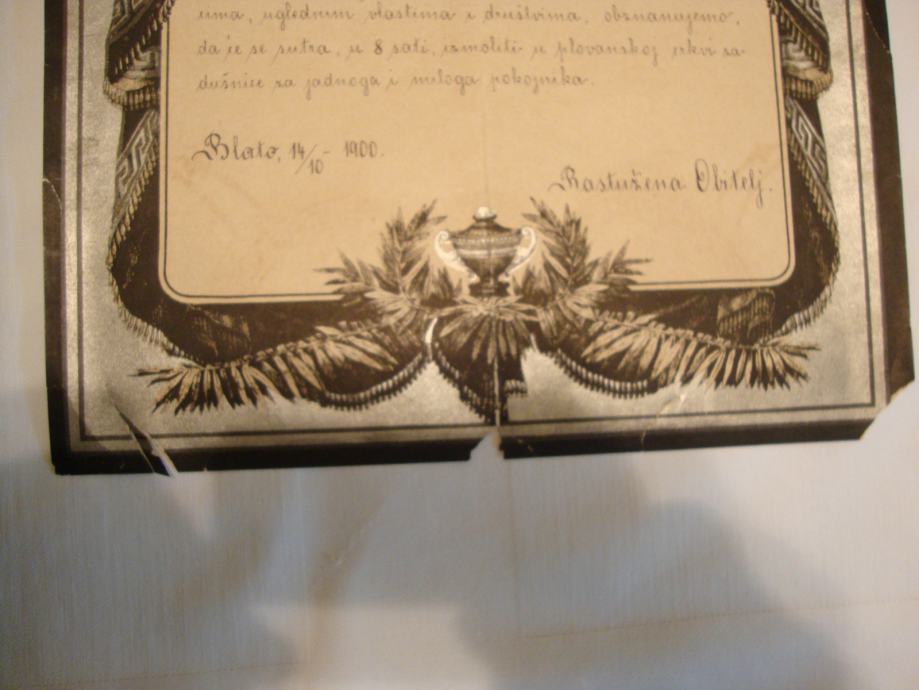 uma, uglednim vlastima i društvima, obznanujemo,
da će se sutra, u 8 sati, izmoliti u plovanskoj crkvi za-
dušnice za jadnoga i miloga pokojnika.
Blato, 14/10 - 1900.
Rastužena Obitelj.